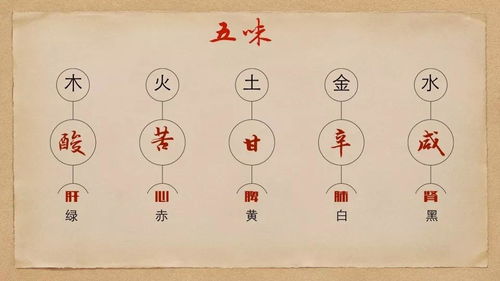 五味
木 火 土 金 水
酸 苦 甘 辛 咸
肝 心 脾 肺 肾
绿 赤 黄 白 黑